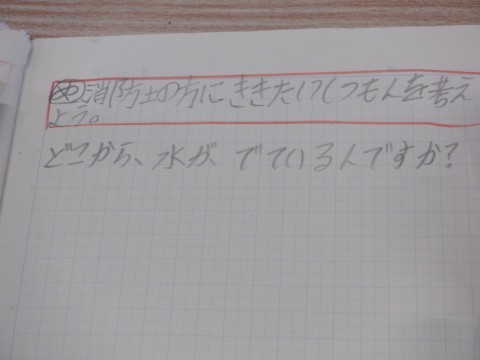 め消防士の方にききたいしつもんを考え
よう。
どこから、水がでているんですか?